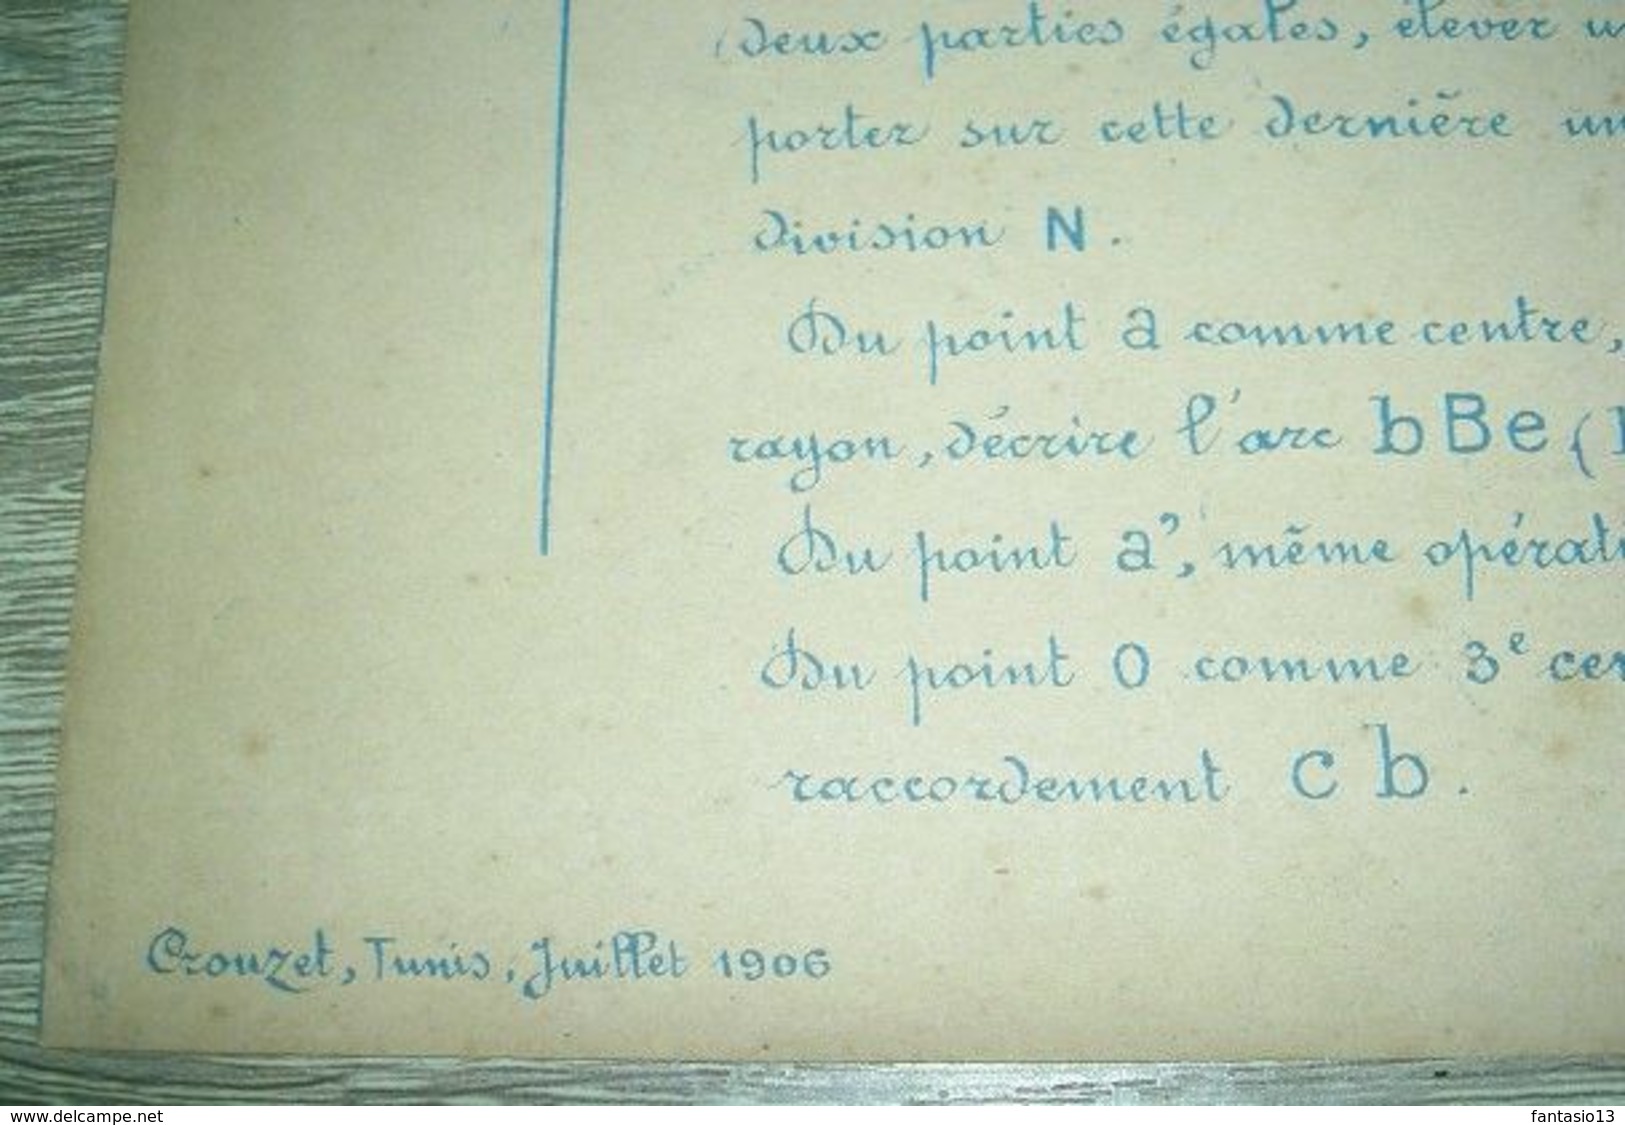 deux parties égales, élever
porter sur cette dernière
division N.
Du point a comme centre,
rayon, décrire l'arc bBe (
Du point a', même opérati
Du point O comme 3e cen
raccordement c b.
Crouzet, Tunis, Juillet 1906
www.delcampe.net
fantasio13